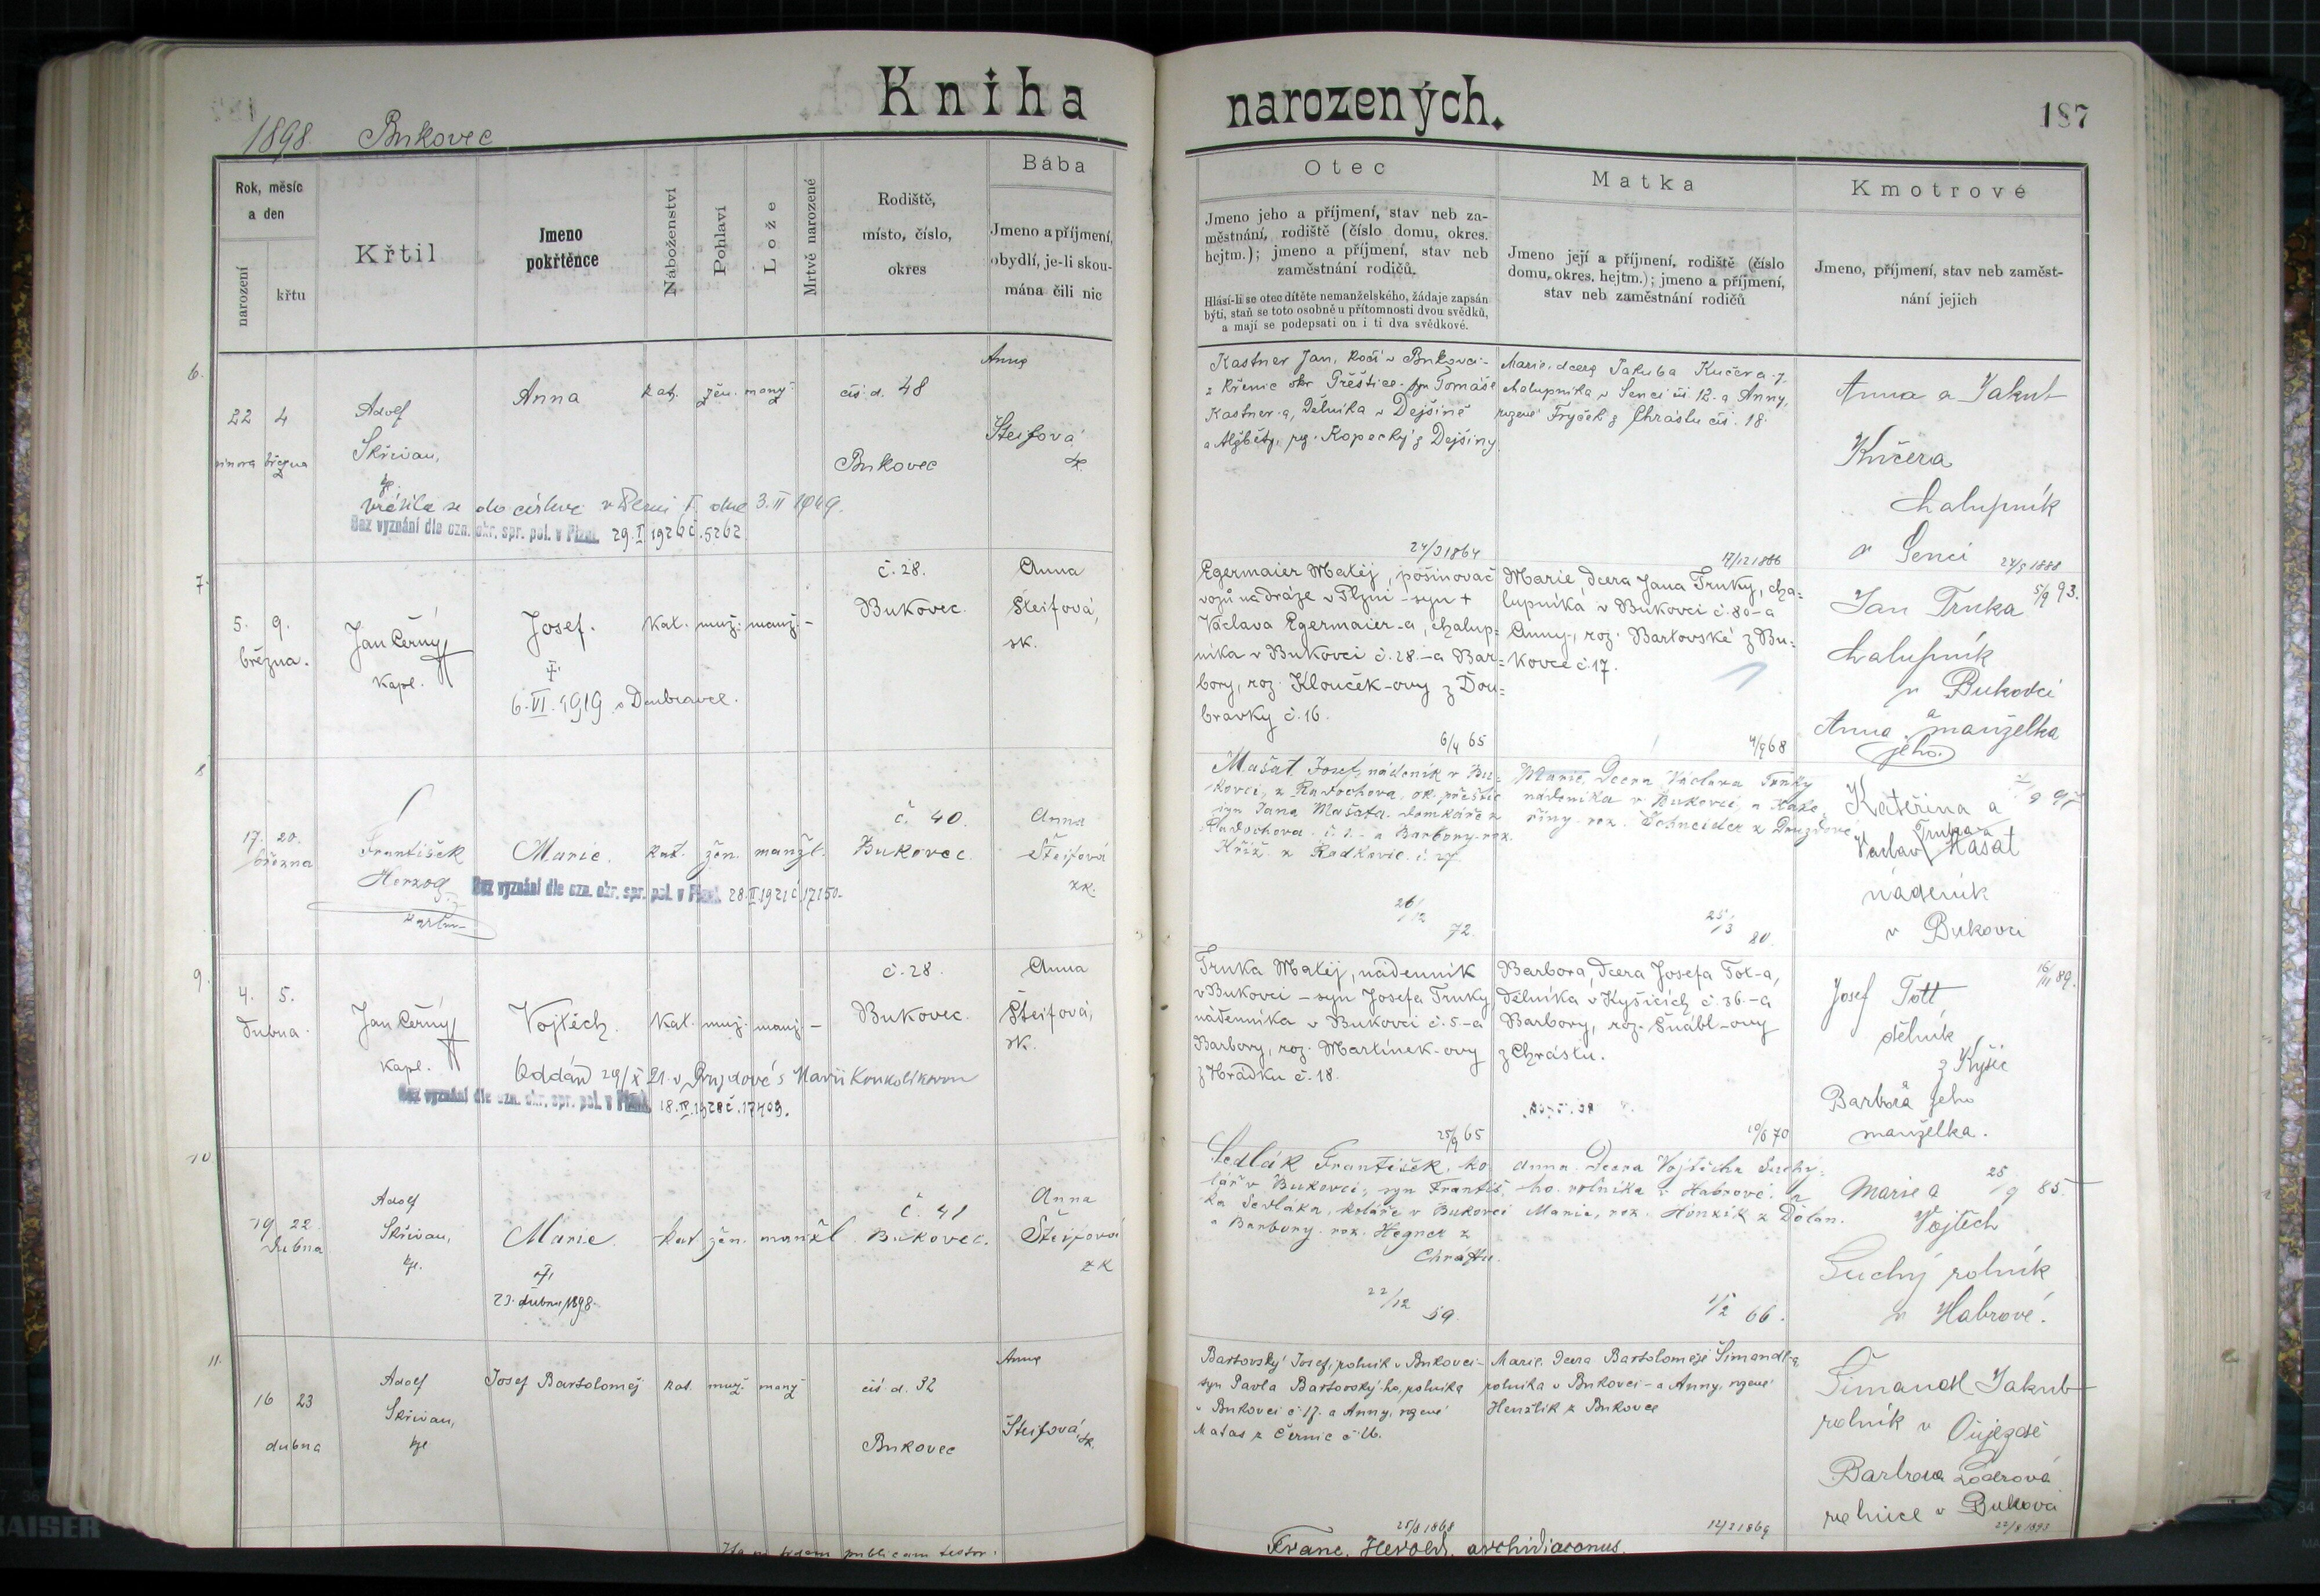 Kniha narozených.
187
1898. Bukovec
Rok, měsíc a den
narození
křtu
Křtil
Jmeno pokřtěnce
Náboženství
Pohlaví
Lože
Mrtvě narozené
Rodiště, místo, číslo, okres
Bába
Jmeno a příjmení, obydlí, je-li skoumána čili nic
Otec
Jmeno jeho a příjmení, stav neb za-
městnání, rodiště (číslo domu, okres.
hejtm.); jmeno a příjmení, stav neb
zaměstnání rodičů.
Hlásí-li se otec dítěte nemanželského, žádaje zapsán
býti, staň se toto osobně u přítomnosti dvou svědků,
a mají se podepsati on i ti dva svědkové.
Matka
Jmeno její a příjmení, rodiště (číslo
domu, okres. hejtm.); jmeno a příjmení,
stav neb zaměstnání rodičů
Kmotrové
Jmeno, příjmení, stav neb zaměst-
nání jejich
6.
22 4
února března
Adolf
Skřivan,
Anna
kat. žen. manž.
čís. d. 48
Bukovec
Anna
Šteifová
zk.
Vrátila se do církve v Plzni I. dne 3. II 1949.
Bez vyznání dle ozn. okr. spr. pol. v Plzni. 29. I 1926 č. 5262
Kastner Jan, kočí v Bukovci -
z Křenic okr Přeštice - syn Tomáše
Kastner-a, dělníka v Dejšině
a Alžběty, roz. Kopecký z Dejšiny
24/3 1864
Marie, dcera Jakuba Kučera-y
chalupníka v Senci čís. 12. a Anny,
rozené Fryček z Chrástu čís. 18.
17/12 1866
Anna a Jakub
Kučera
chalupník
v Senci
24/5 1888
7.
5. 9.
března.
Jan Černý
Kapl.
Josef.
6. VI. 1919 v Doubravce.
Kat. muž. manž. -
č. 28.
Bukovec.
Anna
Šteifová,
zk.
Egermaier Matěj, pošinovač
vozů na dráze v Plzni - syn +
Václava Egermaier-a, chalup-
níka v Bukovci č. 28. - a Bar-
bory, roz. Klouček-ovy z Dou-
bravky č. 16.
6/4 65
Marie, dcera Jana Trnky, cha-
lupníka v Bukovci č. 80 - a
Anny, roz. Bartovské z Bu-
kovce č. 17.
4/9 68
Jan Trnka 5/9 93.
chalupník
v Bukovci
a
Anna manželka
jeho.
8
17. 20.
března
František
Herzog
Marie.
kat. žen. manžl.
č. 40.
Bukovec
Anna
Šteifová
zk.
Bez vyznání dle ozn. okr. spr. pol. v Plzni. 28. II 1921 č 17150-
Mašat Josef, nádeník v Bu-
kovci, z Radochova, ok. přeštic
syn Jana Mašata, domkáře z
Radochova č. 2. - a Barbory roz.
Kříž z Radkovic č. 27.
26/12 72.
Marie, Dcera Václava Trnky
nádeníka v Bukovci, a Kate-
řiny roz. Schneider z Druzdové
25/3 80.
Kateřina a
Trnková
Vaclav Masat
nádeník
v Bukovci
9.
4. 5.
dubna.
Jan Černý
Kapl.
Vojtěch.
Kat. muž. manž. -
č. 28.
Bukovec.
Anna
Šteifová,
zk.
Oddán 29/X 21. v Druzdové s Marií Konkolíkovou
Bez vyznání dle ozn. okr. spr. pol. v Plzni. 18. IV. 1928 č. 17409.
Trnka Matěj, nádenník
v Bukovci - syn Josefa Trnky
nádenníka v Bukovci č. 5. - a
Barbory, roz. Martínek-ovy
z Hrádku č. 18.
25/9 65
Barbora, dcera Josefa Tot-a,
dělníka v Kyšicích č. 36. - a
Barbory, roz. Šnábl-ovy
z Chrástu.
10/6 70
Josef Tott
16/III 89.
dělník
z Kyšic
a
Barbora jeho
manželka.
10
19 22.
dubna
Adolf
Skřivan,
Marie.
23. dubna 1898.
kat žen. manžl
č. 41
Bukovec.
Anna
Šteifová
zk
Sedlák František, ko-
lář v Bukovci, syn Františ-
ka Sedláka, koláře v Bukovci
a Barbory roz. Hegner z
Chrástu.
22/12 59.
Anna Dcera Vojtěcha Suchý-
ho. rolníka v Habrové. a
Marie, roz. Honzík z Dolan.
1/2 66.
Marie a 25/9 85.
Vojtěch
Suchý rolník
v Habrové.
11.
16 23
dubna
Adolf
Skřivan,
Josef Bartoloměj
kat. muž. manž
čís. d. 32
Bukovec
Anna
Šteifová, zk.
Bartovský Josef, rolník v Bukovci -
syn Pavla Bartovský-ho, rolníka
v Bukovci č 17. a Anny, rozené
Matas z Černic č 16.
25/8 1868
Marie, Dcera Bartoloměje Šimandl-a
rolníka v Bukovci - a Anny, rozené
Henzlik z Bukovce
12/2 1869
Šimandl Jakub
rolník v Oujezdě
Barbora Loderová
rolnice v Bukovci
22/8 1893
publicam testor.
Franc. Herold, archidiaconus.